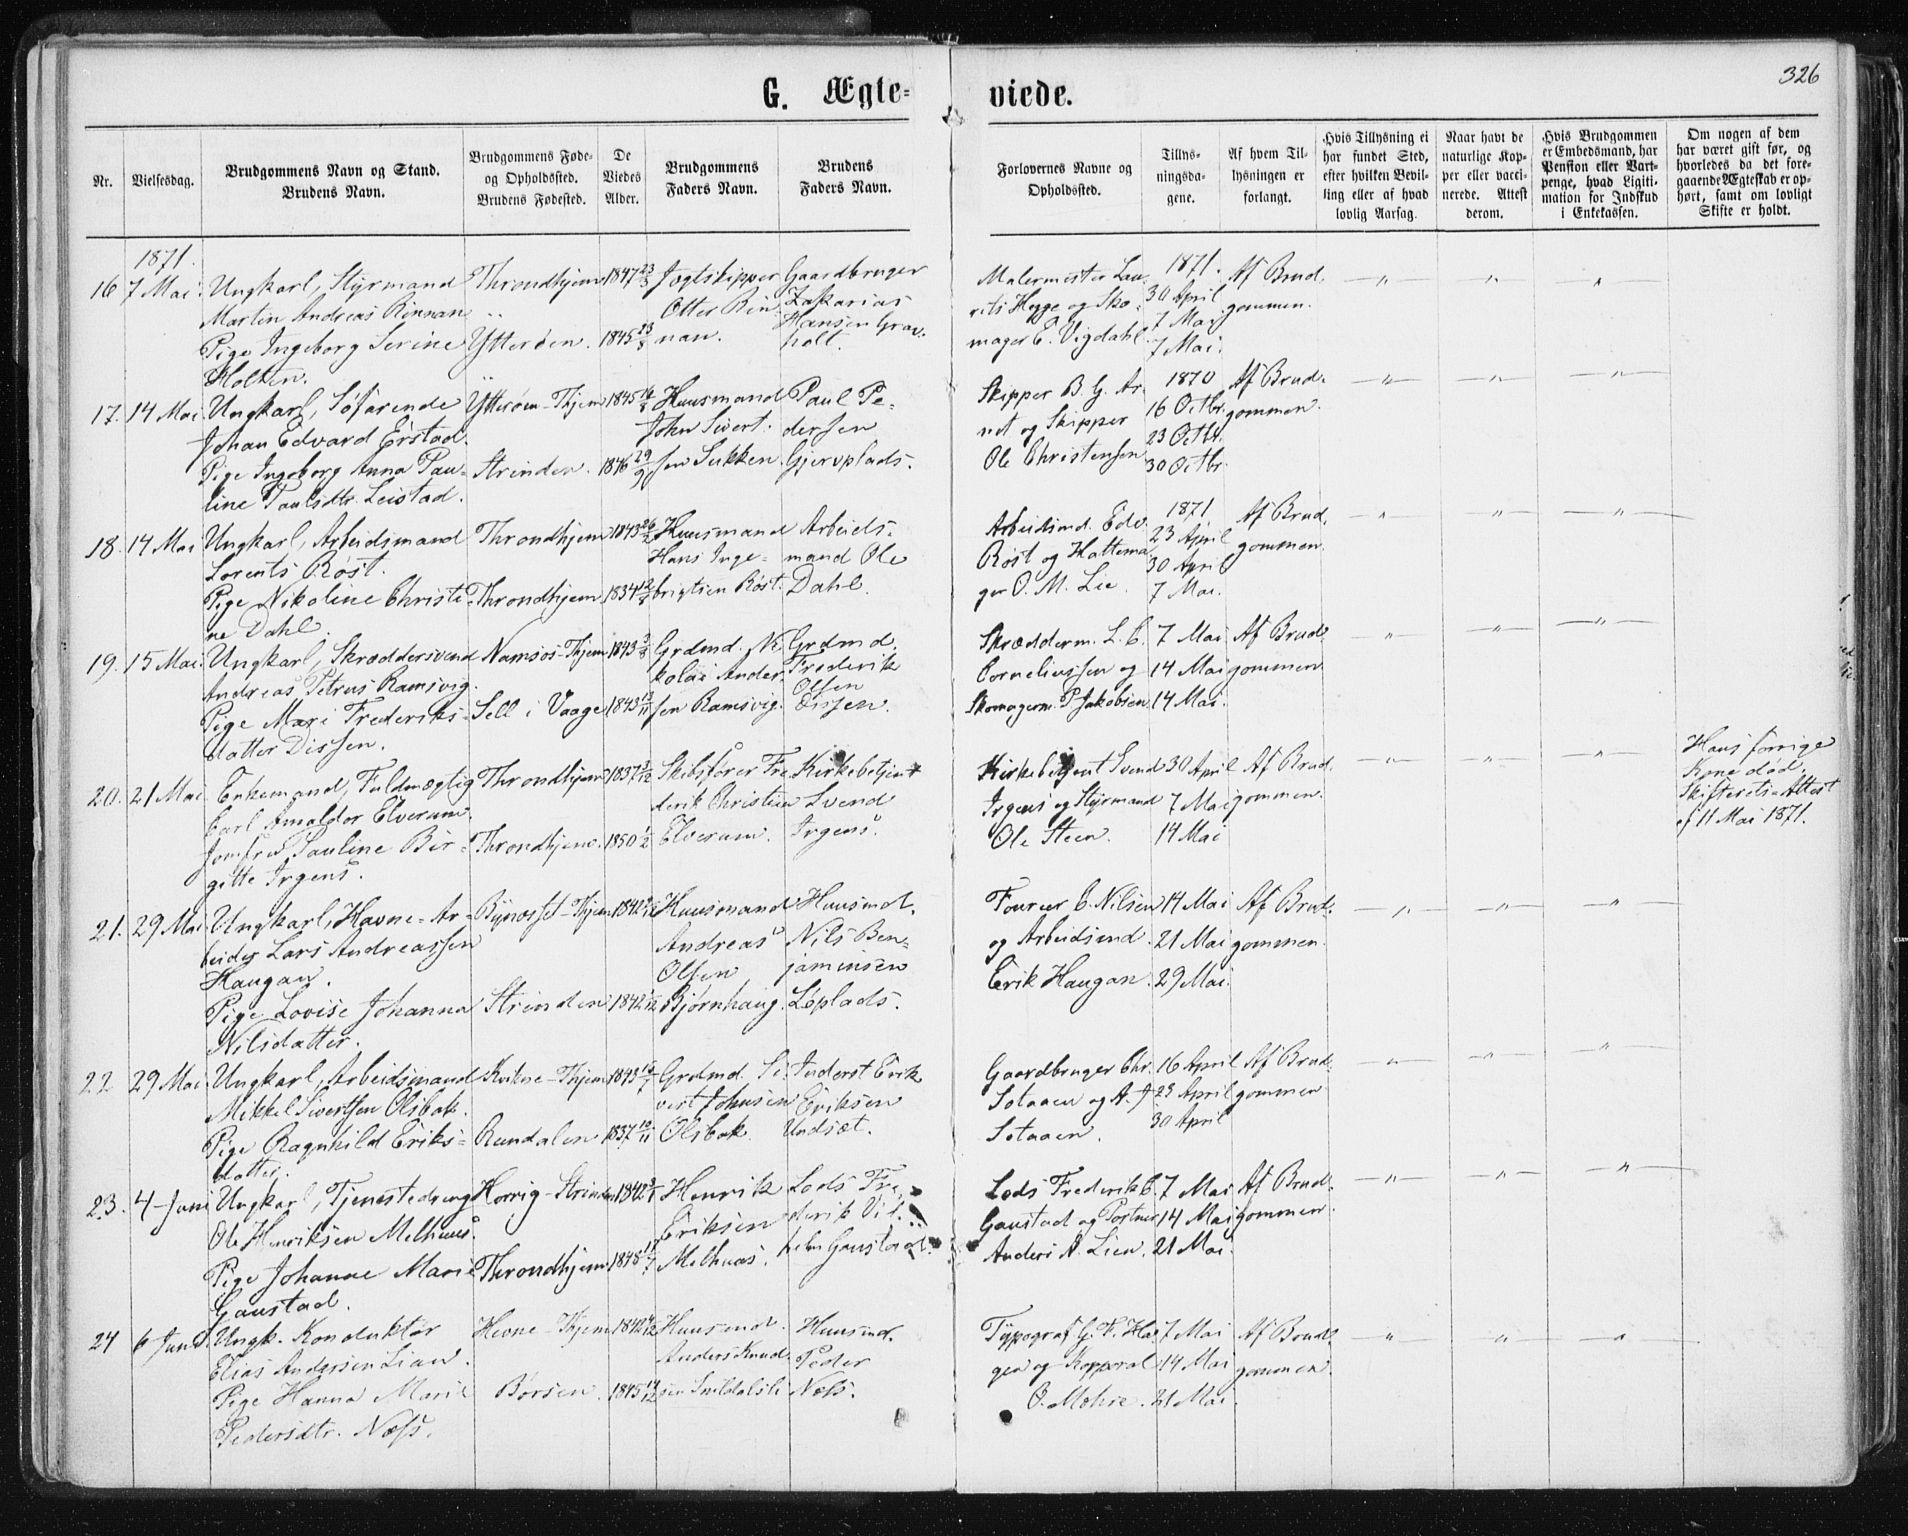 326
G. Ægte-
viede.
Nr.
Vielsesdag.
Brudgommens Navn og Stand.
Brudens Navn.
Brudgommens Føde-
og Opholdssted.
Brudens Fødested.
De
Viedes
Alder.
Brudgommens
Faders Navn.
Brudens
Faders Navn.
Forlovernes Navne og
Opholdssted.
Tillys-
ningsda-
gene.
Af hvem Til-
lysningen er
forlangt.
Hvis Tillysning ei
har fundet Sted,
efter hvilken Bevil-
ling eller af hvad
lovlig Aarsag.
Naar havt de
naturlige Kop-
per eller vacci-
nerede. Attest
derom.
Hvis Brudgommen
er Embedsmand, har
Pension eller Vart-
penge, hvad Ligiti-
mation for Indskud
i Enkekassen.
Om nogen af dem
har været gift før, og
hvorledes da det fore-
gaaende Ægteskab er op-
hørt, samt om lovligt
Skifte er holdt.
1871.
16 7 Mai.
Ungkarl, Styrmand
Martin Andreas Rinnan
Pige Ingeborg Serine
Holten.
Throndhjem
Ytterøen.
1847 23/3
1845 23/8
Jægtskipper
Otter Rin-
nan.
Gaardbruger
Zakarias
Hansen Grav-
holt.
Malermester Lau-
rits Hegge og Sko-
mager E. Vigdahl.
1871.
30 April
7 Mai
7 Mai.
Af Brud-
gommen.
17. 14 Mai
Ungkarl, Søfarende
Johan Edvard Erstad.
Pige Ingeborg Anna Pau-
line Paulsdtr. Leistad.
Ytterøen - Thjem
Strinden.
1845 16/8
1846 29/9
Huusmand
John Sivert-
sen Sukken.
Paul Pe-
dersen
Gjervplads.
Skipper B. G. Ar-
net og Skipper
Ole Christensen
1870
16 Octbr.
23 Octbr.
30 Octbr.
Af Brud-
gommen.
18. 14 Mai
Ungkarl, Arbeidsmand
Lorents Røst.
Pige Nikoline Christi-
ne Dahl.
Throndhjem
Throndhjem
1843 26/2
1834 12/8
Huusmand
Hans Inge-
brigtsen Røst.
Arbeids-
mand Ole
Dahl.
Arbeidsmd. Edv.
Røst og Hattema-
ger O. M. Lie.
1871
23 April
30 April
7 Mai.
Af Brud-
gommen.
19. 15 Mai.
Ungkarl, Skræddersvend
Andreas Petrus Ramsvig.
Pige Mari Frederiks-
datter Dissen.
Namsos - Thjem
Sell i Vaage
1843 3/8
1843 13/11
Grdmd. Ni-
kolai Ander-
sen Ramsvig.
Grdmd.
Frederik
Olsen
Dissen.
Skrædderm. L. C.
Corneliussen og
Skomagerm. P. Jakobsen
7 Mai
14 Mai
14 Mai.
Af Brud-
gommen
20. 21 Mai
Enkemand, Fuldmægtig
Carl Amaldor Elverum.
Jomfru Pauline Bir-
gitte Irgens.
Throndhjem
Throndhjem.
1837 3/12
1850 1/2
Skibsfører Fre-
derik Christian
Elverum.
Kirkebetjent
Svend
Irgens.
Kirkebetjent Svend
Irgens og Styrmand
Ole Steen.
30 April
7 Mai
14 Mai
Af Brud-
gommen.
Hans forrige
Kone død.
Skifterets-Attest
af 11 Mai 1871.
21. 29 Mai
Ungkarl, Havne-Ar-
beider Lars Andreassen
Haugan.
Pige Lovise Johanna
Nilsdatter.
Bynæsset - Thjem
Strinden
1842
1842 1/12
Huusmand
Andreas
Olsen
Bjørnhaug.
Huusmd.
Nils Ben-
jaminsen
Løplads.
Fourer C. Nilsen
og Arbeidsmd.
Erik Haugan.
14 Mai
21 Mai
29 Mai.
Af Brud-
gommen.
22 29 Mai
Ungkarl, Arbeidsmand
Mikkel Sivertsen Olsbak.
Pige Ragnhild Eriks-
datter.
Kvikne - Thjem
Rendalen
1843
1837 10/11
Grdmd. Si-
vert Johnsen
Olsbak.
Inderst Erik
Eriksen
Undset.
Gaardbruger Chr.
Sotaaen og A. J.
Sotaaen.
16 April
23 April
30 April
Af Brud-
gommen
23. 4 Juni
Ungkarl, Tjenestedreng
Ole Henriksen Melhuus.
Pige Johanne Marie
Gaustad.
Horrig - Strinden
Throndhjem
1842
1848
Henrik
Eriksen
Melhuus.
Lods Fre-
derik Vil-
helm Gaustad.
Lods Frederik C.
Gaustad og Portner
Anders A. Lien.
7 Mai
14 Mai
21 Mai.
Af Brud-
gommen
24 6 Juni.
Ungk. Konduktør
Elias Andersen Lian.
Pige Hanna Marie
Pedersdtr. Næss.
Hevne - Thjem
Børsen.
1842
1845
Huusmd.
Anders Knud-
sen Snildalsli
Huusmd.
Peder
Næss.
Typograf G. F. Ha-
gen og Kopperal
O. Mohre.
7 Mai
14 Mai
21 Mai.
Af Brud-
gommen.